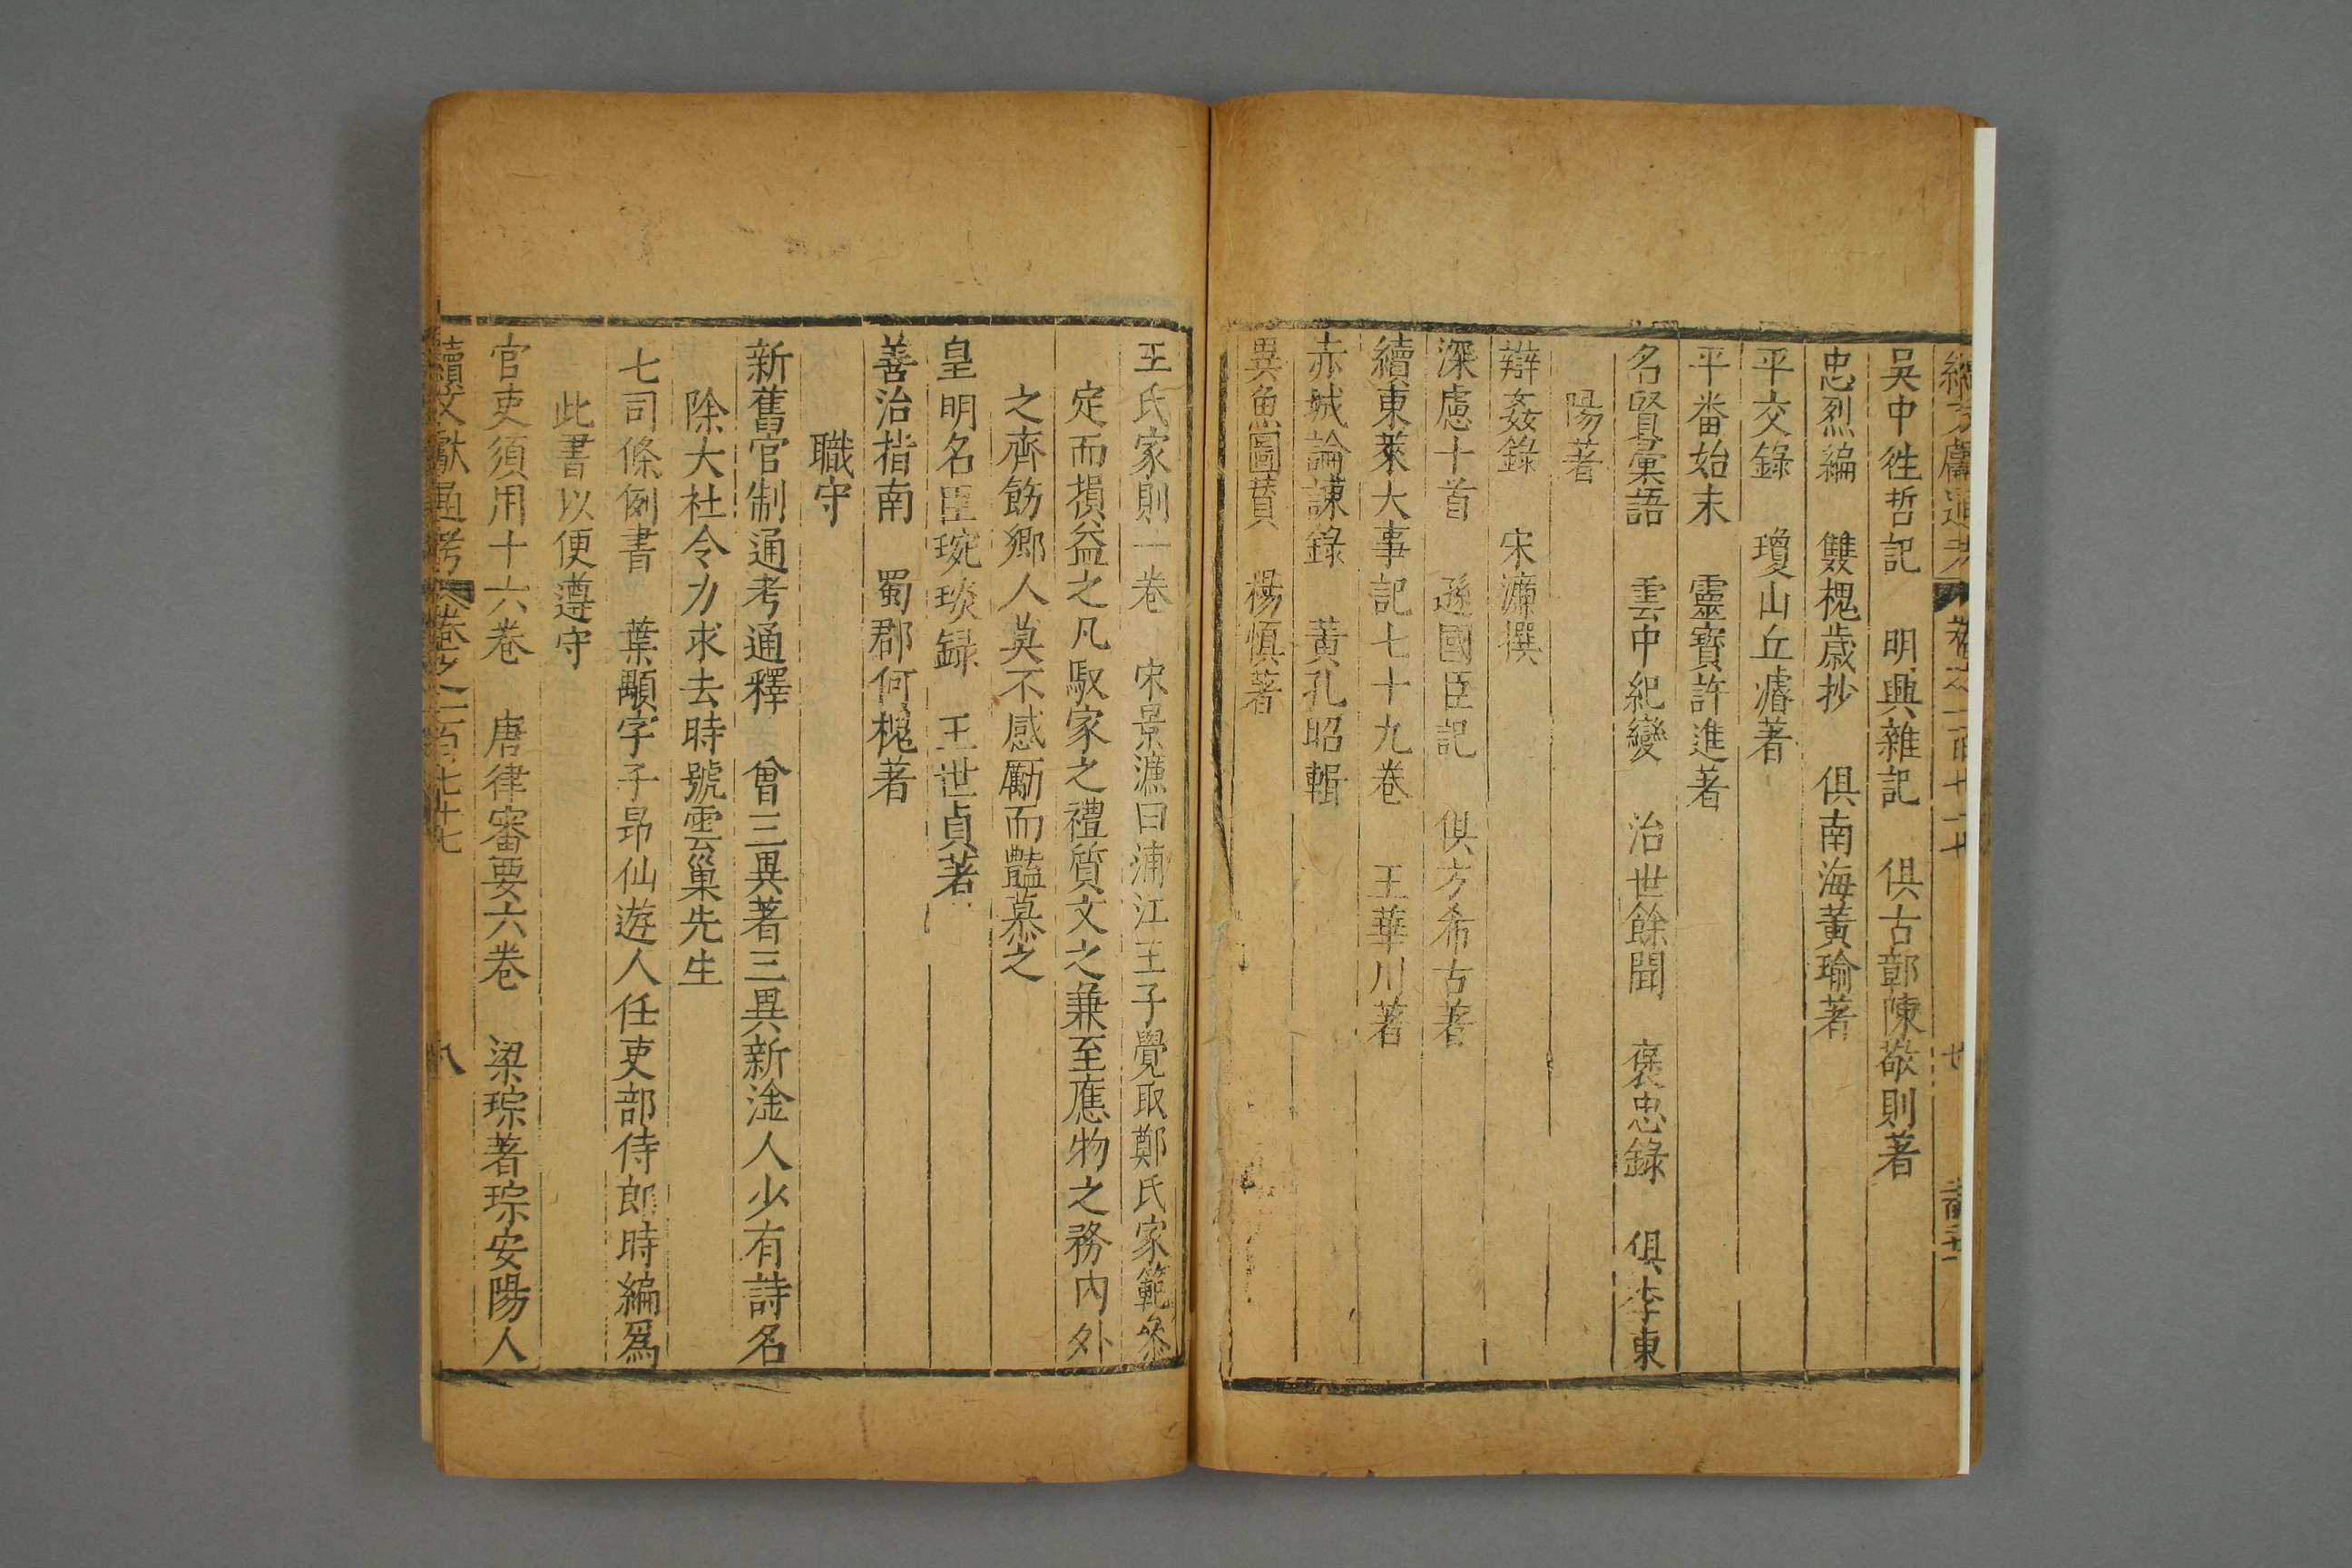 續文獻通考 卷之一百七十七
吳中徃哲記 明興雜記 俱古鄣陳敬則著
忠烈編 雙槐歲抄 俱南海黃瑜著
平交錄 瓊山丘濬著
平畨始末 靈寶許進著
名賢彙語 雲中紀變 治世餘聞 褒忠錄 俱李東
陽著
辯姦錄 宋濂撰
深慮十首 遜國臣記 俱方希古著
續東萊大事記七十九卷 王華川著
赤城論諫錄 黃孔昭輯
異魚圖贊 楊慎著
王氏家則一卷 宋景濂曰浦江王子覺取鄭氏家範叅
定而損益之凡馭家之禮質文之兼至應物之務內外
之齊飭鄉人莫不感勵而豔慕之
皇明名臣琬琰録 王世貞著
善治指南 蜀郡何槐著
職守
新舊官制通考通釋 曾三異著三異新淦人少有詩名
除大社令力求去時號雲巢先生
七司條例書 葉顒字子昻仙遊人任吏部侍郎時編爲
此書以便遵守
官吏須用十六卷 唐律審要六卷 梁琮著琮安陽人
續文獻通考 卷之一百七十七 八